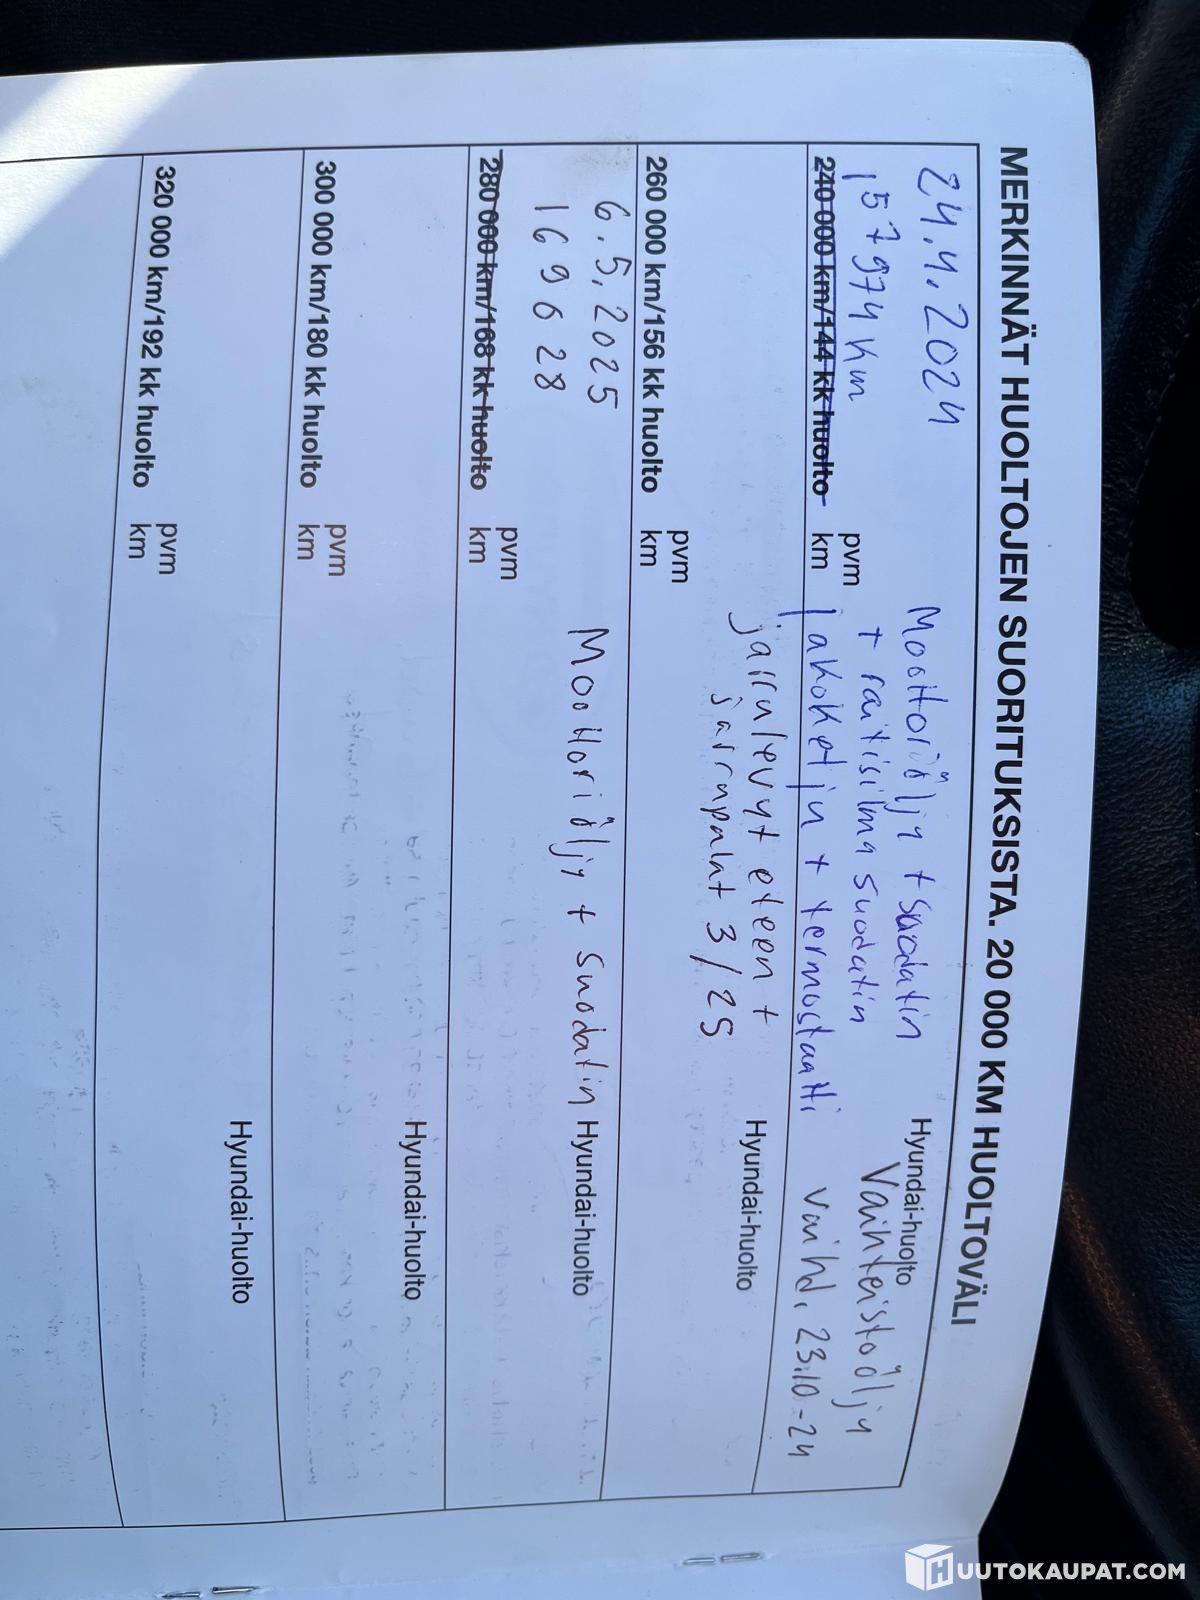 MERKINNÄT HUOLTOJEN SUORITUKSISTA. 20 000 KM HUOLTOVÄLI
24.4.2024
Moottoriöljy + suodatin
Hyundai-huolto
157974 km
+ raitisilma suodatin
Vaihteistoöljy
240 000 km/144 kk huolto
pvm
km
jakoketju + termostaatti
vaihd. 23.10-24
jarrulevyt eteen +
Hyundai-huolto
jarrupalat 3/25
260 000 km/156 kk huolto
pvm
km
6.5.2025
Moottoriöljy + suodatin
Hyundai-huolto
169628
280 000 km/168 kk huolto
pvm
km
Hyundai-huolto
300 000 km/180 kk huolto
pvm
km
Hyundai-huolto
320 000 km/192 kk huolto
pvm
km
HUUTOKAUPAT.COM